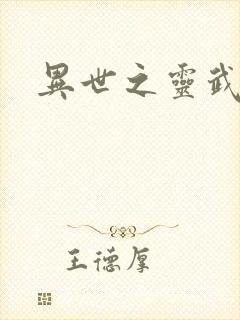 異世之靈武
王德厚